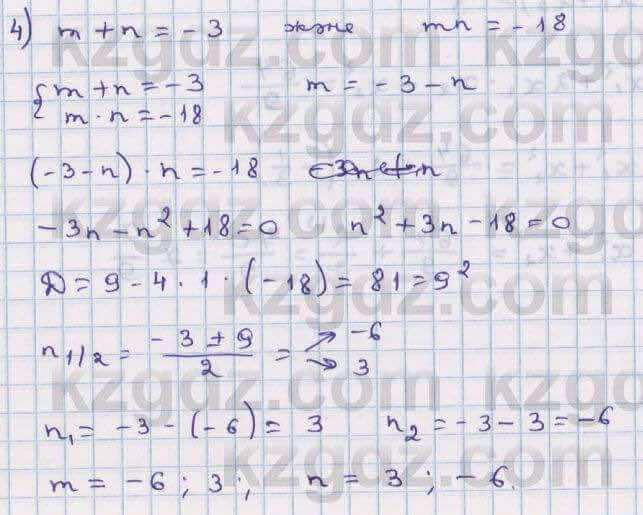 4) m + n = -3 және mn = -18
{ m + n = -3 m = -3 - n
m · n = -18
(-3 - n) · n = -18
-3n - n² + 18 = 0 n² + 3n - 18 = 0
D = 9 - 4 · 1 · (-18) = 81 = 9²
n₁/₂ = (-3 ± 9)/2 = ↗ -6 ↘ 3
n₁ = -3 - (-6) = 3 n₂ = -3 - 3 = -6
m = -6 ; 3 ; n = 3 ; -6.
kzgdz.com